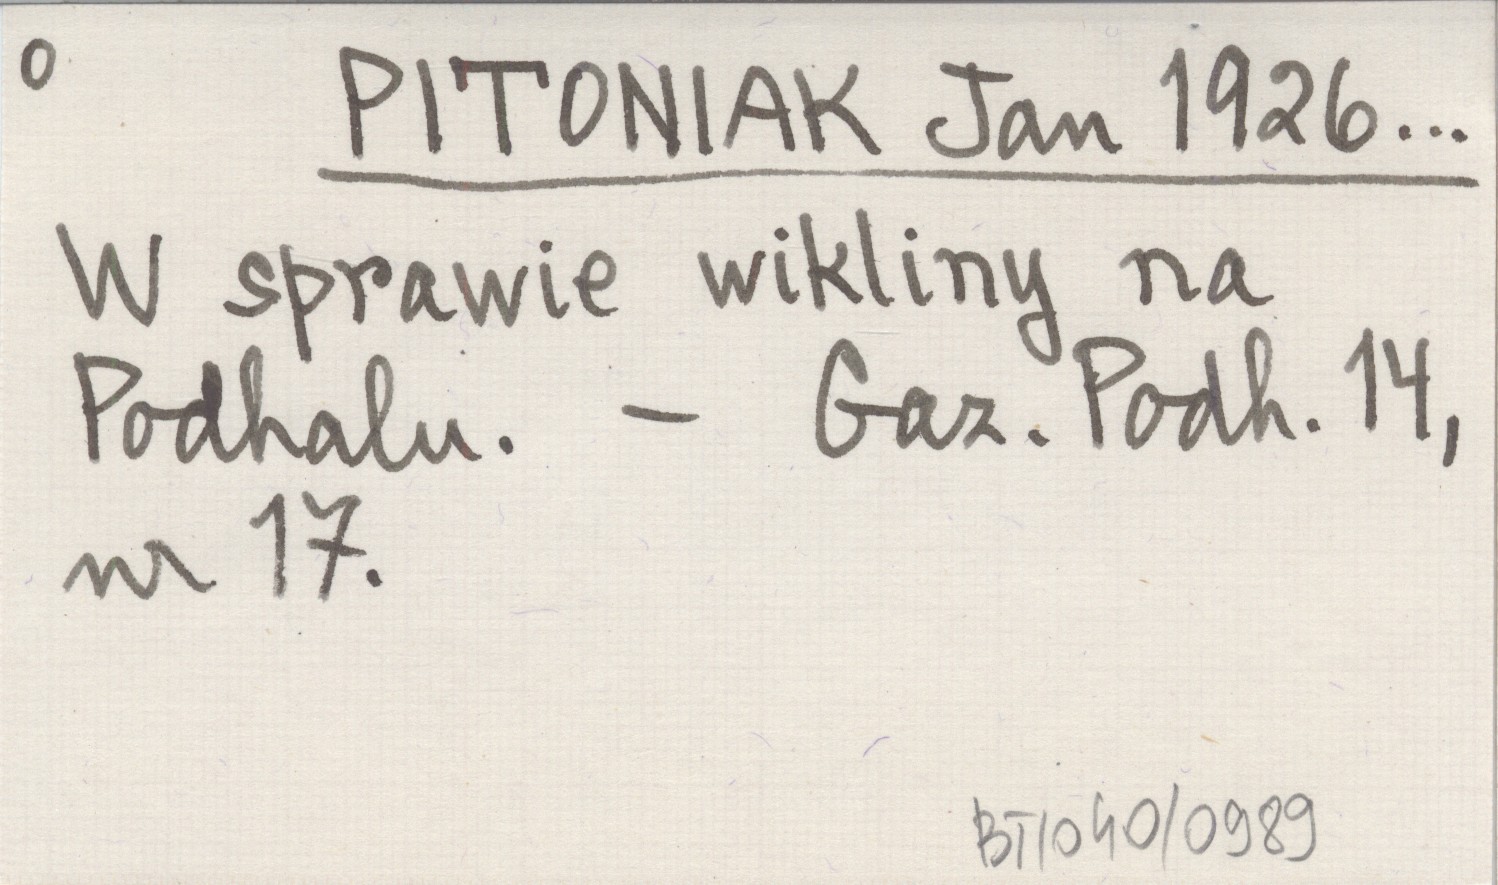 o PITONIAK Jan 1926...
W sprawie wikliny na
Podhalu. – Gaz. Podh. 14,
nr 17.
BT/040/0989